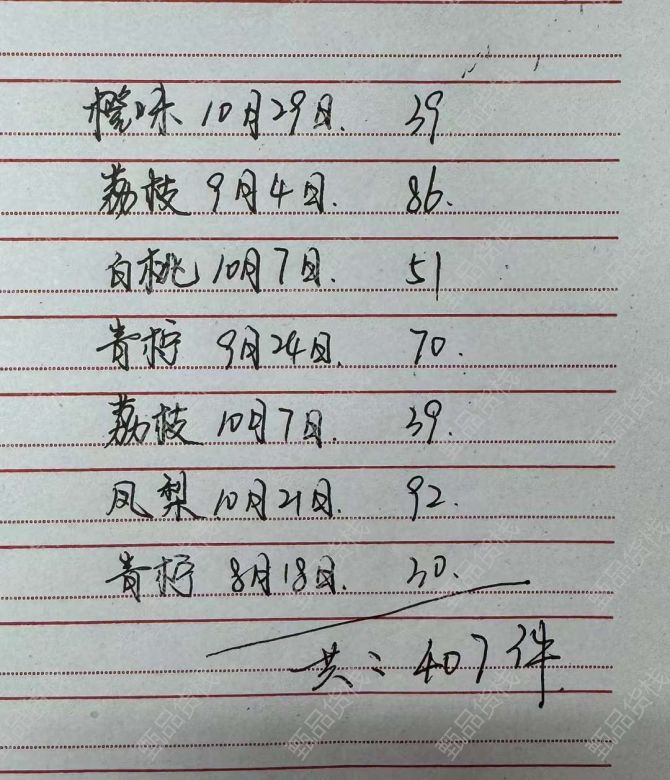 橙味 10月29日. 39
荔枝 9月4日. 86.
白桃 10月7日. 51
青柠 9月24日. 70.
荔枝 10月7日. 39.
凤梨 10月21日. 92.
青柠 8月18日. 30.
共：407件